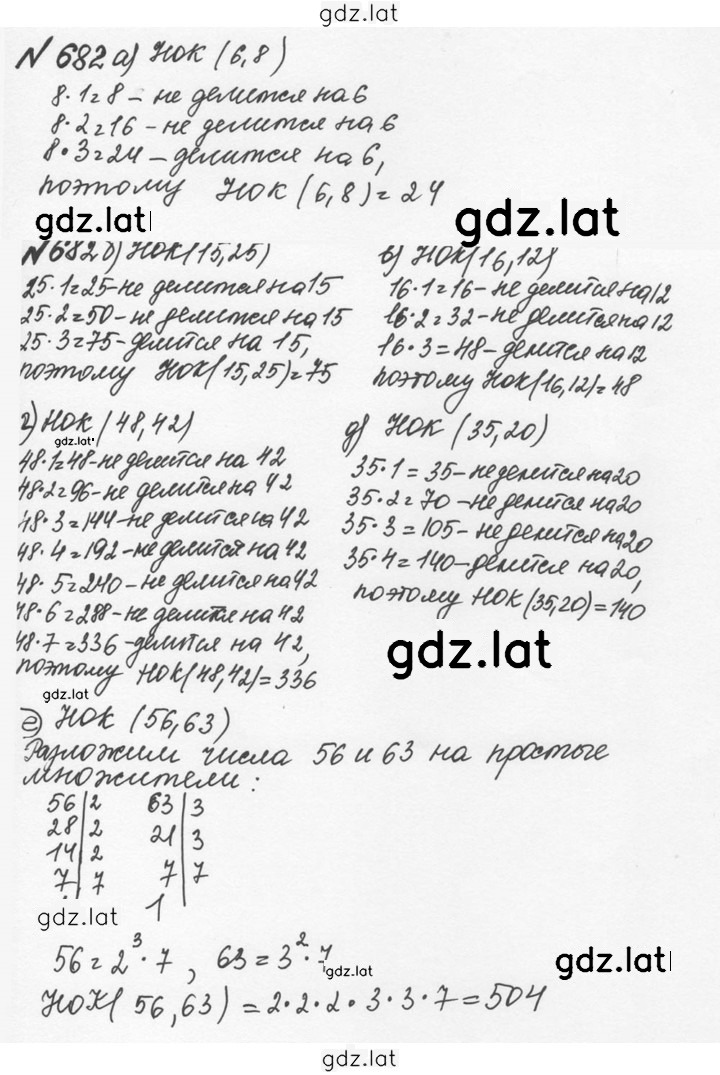 gdz.lat
№ 682 а) НОК (6,8)
8·1=8 – не делится на 6
8·2=16 – не делится на 6
8·3=24 – делится на 6,
поэтому НОК (6,8)=24
gdz.lat
gdz.lat
№ 682 б) НОК(15,25)
25·1=25-не делится на 15
25·2=50-не делится на 15
25·3=75-делится на 15,
поэтому НОК(15,25)=75
в) НОК(16,12)
16·1=16-не делится на 12
16·2=32-не делится на 12
16·3=48-делится на 12
поэтому НОК(16,12)=48
г) НОК (48,42)
gdz.lat
48·1=48-не делится на 42
48·2=96-не делится на 42
48·3=144-не делится на 42
48·4=192-не делится на 42
48·5=240-не делится на 42
48·6=288-не делится на 42
48·7=336-делится на 42,
поэтому НОК(48,42)=336
gdz.lat
д) НОК (35,20)
35·1=35-не делится на 20
35·2=70-не делится на 20
35·3=105-не делится на 20
35·4=140-делится на 20,
поэтому НОК(35,20)=140
gdz.lat
е) НОК (56,63)
Разложим числа 56 и 63 на простые
множители:
56|2 63|3
28|2 21|3
14|2 7|7
7|7 1
gdz.lat
56=2³·7, 63=3²·7
gdz.lat
gdz.lat
НОК(56,63)=2·2·2·3·3·7=504
gdz.lat